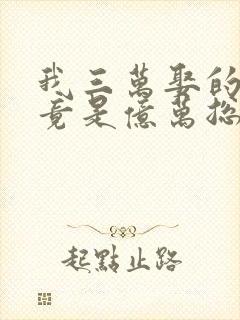 我三萬娶的
竟是億萬總
起點止路